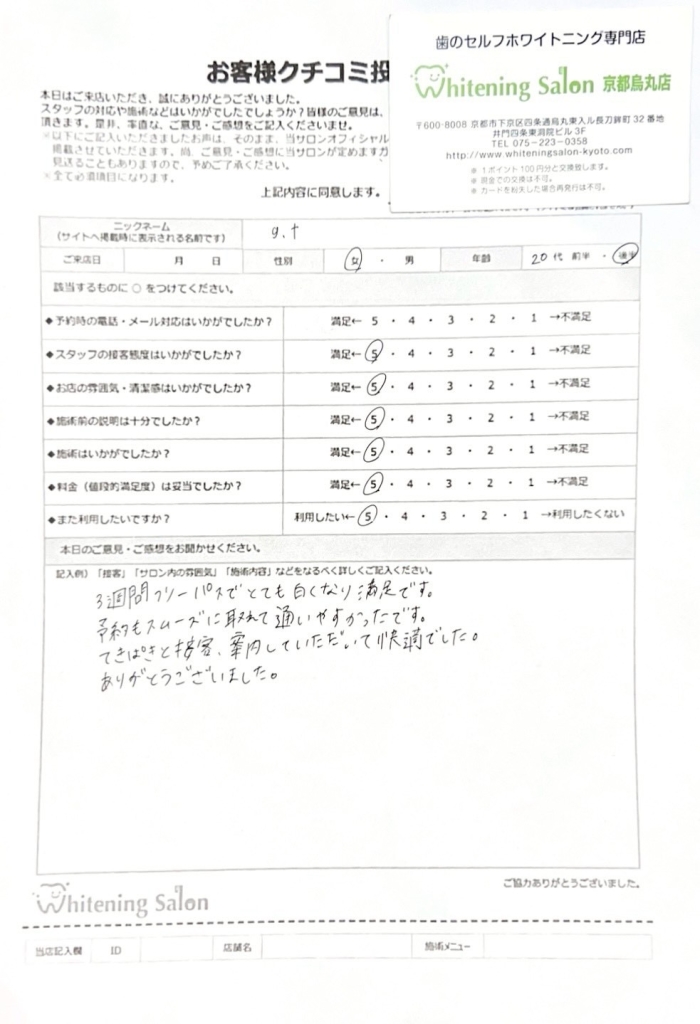 歯のセルフホワイトニング専門店
Whitening Salon 京都烏丸店
〒600-8008 京都市下京区四条通烏丸東入ル長刀鉾町 32 番地
井門四条東洞院ビル 3F
TEL 075-223-0358
http://www.whiteningsalon-kyoto.com
※ 1ポイント 100円分と交換致します。
※ 現金での交換は不可。
※ カードを紛失した場合再発行は不可。
お客様クチコミ投
本日はご来店いただき、誠にありがとうございました。
スタッフの対応や施術などはいかがでしたでしょうか？皆様のご意見は、
頂きます。是非、率直な、ご意見・ご感想をご記入くださいませ。
※以下にご記入いただきましたお声は、そのまま、当サロンオフィシャル
掲載させていただきます。尚、ご意見・ご感想に当サロンが定めますガ
見送ることもありますので、予めご了承ください。
※全て必須項目になります。
上記内容に同意します。
ニックネーム
（サイトへ掲載時に表示される名前です） g.t
ご来店日 月 日 性別 女 ・ 男 年齢 20 代 前半 ・ 後半
該当するものに ○ をつけてください。
◆予約時の電話・メール対応はいかがでしたか？ 満足← 5 ・ 4 ・ 3 ・ 2 ・ 1 →不満足
◆スタッフの接客態度はいかがでしたか？ 満足← 5 ・ 4 ・ 3 ・ 2 ・ 1 →不満足
◆お店の雰囲気・清潔感はいかがでしたか？ 満足← 5 ・ 4 ・ 3 ・ 2 ・ 1 →不満足
◆施術前の説明は十分でしたか？ 満足← 5 ・ 4 ・ 3 ・ 2 ・ 1 →不満足
◆施術はいかがでしたか？ 満足← 5 ・ 4 ・ 3 ・ 2 ・ 1 →不満足
◆料金（値段的満足度）は妥当でしたか？ 満足← 5 ・ 4 ・ 3 ・ 2 ・ 1 →不満足
◆また利用したいですか？ 利用したい← 5 ・ 4 ・ 3 ・ 2 ・ 1 →利用したくない
本日のご意見・ご感想をお聞かせください。
記入例）「接客」「サロン内の雰囲気」「施術内容」などをなるべく詳しくご記入ください。
3週間フリーパスでとても白くなり満足です。
予約もスムーズに取れて通いやすかったです。
てきぱきと接客、案内していただいて快適でした。
ありがとうございました。
ご協力ありがとうございました。
Whitening Salon
当店記入欄 ID 店舗名 施術メニュー